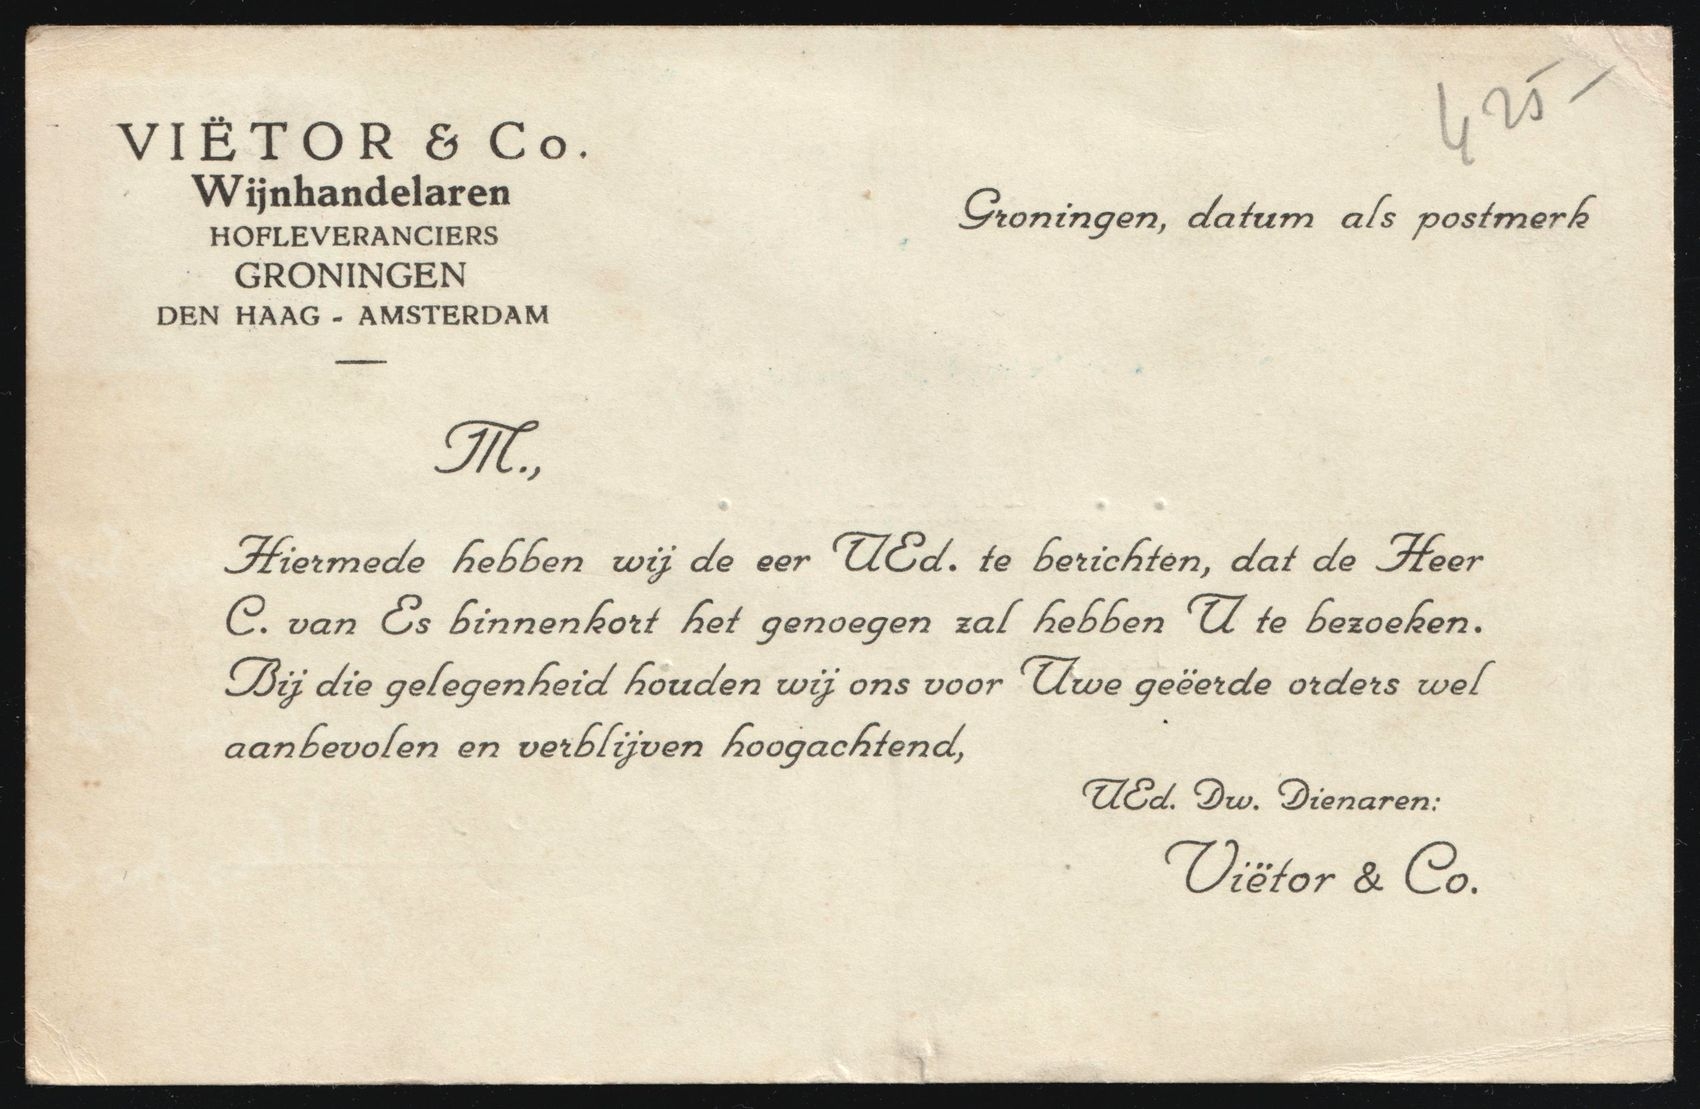 VIËTOR & Co.
Wijnhandelaren
HOFLEVERANCIERS
GRONINGEN
DEN HAAG - AMSTERDAM
425-
Groningen, datum als postmerk
M.,
Hiermede hebben wij de eer UEd. te berichten, dat de Heer
C. van Es binnenkort het genoegen zal hebben U te bezoeken.
Bij die gelegenheid houden wij ons voor Uwe geëerde orders wel
aanbevolen en verblijven hoogachtend,
UEd. Dw. Dienaren:
Viëtor & Co.